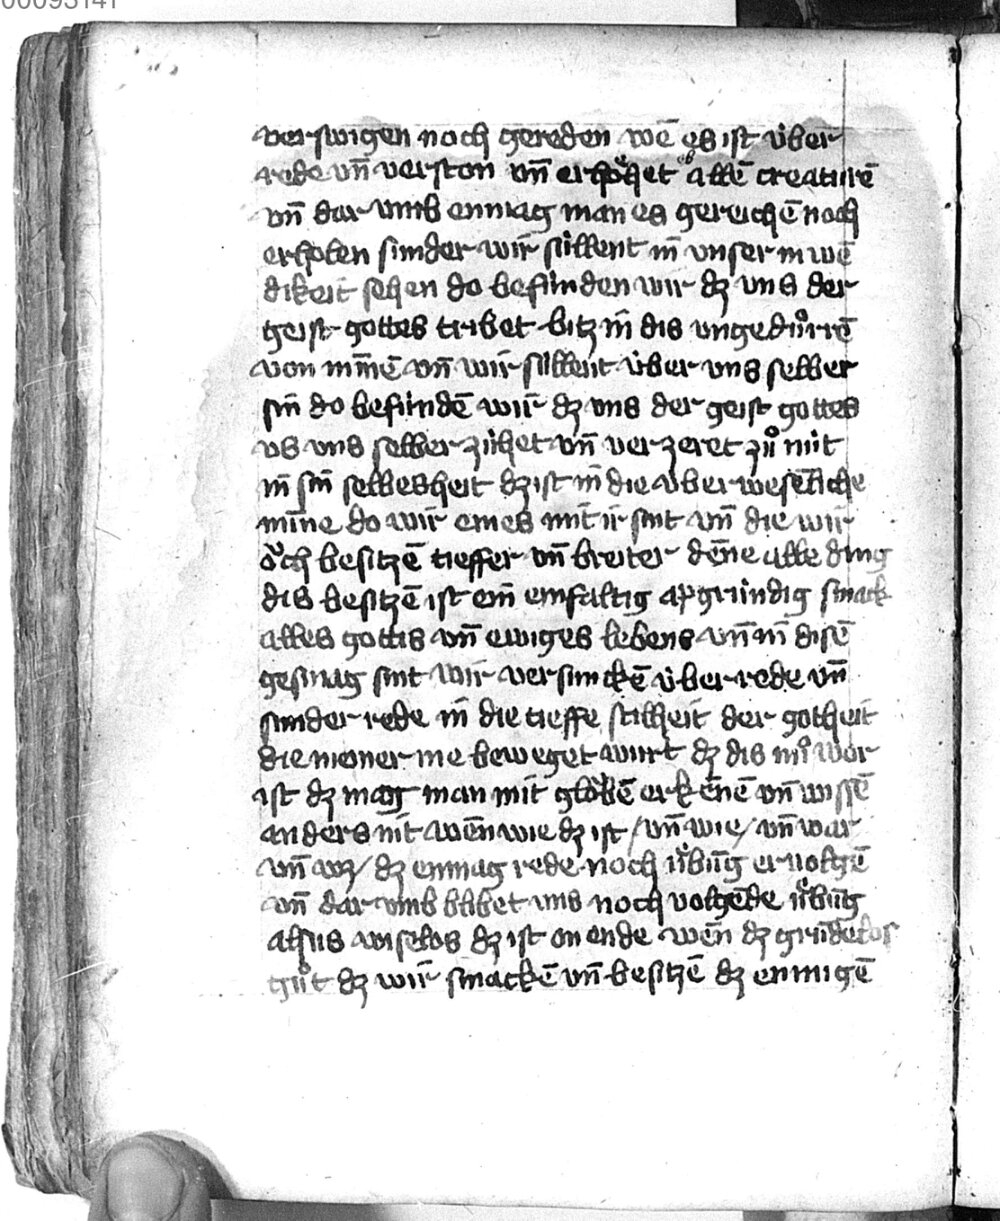 00093141
verswigen noch gereden wē es ist úber
rede vn̄ verston vn̄ erhoͤhet ob allē creaturē
vn̄ dar vmb enmag man es gereichē noch
erholen sunder wir súllent in̄ vnser inwē
dikeit sehen do befinden wir dz vns der
geist gottes tribet bitz in̄ dis vngeduͦrrē
von minnē vn̄ wir súllent úber vns selber
sin̄ do befindē wir dz vns der geist gottes
vs vns selber zúhet vn̄ verzeret zuͦ nút
in̄ sin̄ selbesheit dz ist in̄ die úberwesēliche
mīne do wir eines mit ir sint vn̄ die wir
oͮch besitzē tieffer vn̄ breiter dēne alle ding
dis besitzē ist ein̄ einfaltig apgrúndig smack
alles gottis vn̄ ewiges lebens vn̄ in̄ disē
gesmag sint wir versunckē úber rede vn̄
sunder rede in̄ die tieffe stilheit der gotheit
die niener me beweget wurt dz dis nuͦ wor
ist dz mag man mit gloͮbē erkēnē vn̄ wissē
anders nit wen̄ wie dz ist / vn̄ wie / vn̄ war
vn̄ wz / dz enmag rede noch uͤbūg ervolgē
vn̄ dar vmb blibet vns noch volgēde uͤbūg
alsus wiselos dz ist on ende wen̄ dz grūdelos
guͦt dz wir smackē vn̄ besitzē dz enmúgē